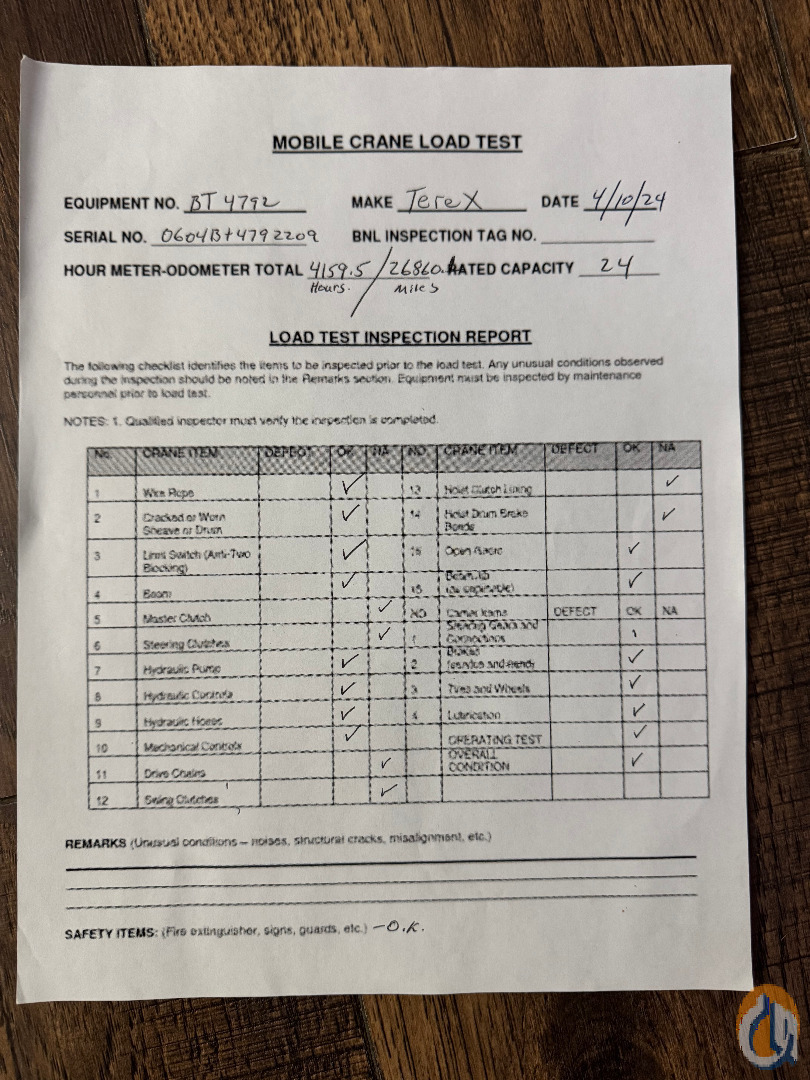 MOBILE CRANE LOAD TEST
EQUIPMENT NO. BT 4792 MAKE Terex DATE 4/10/24
SERIAL NO. 0604Bt4792209 BNL INSPECTION TAG NO.
HOUR METER-ODOMETER TOTAL 4159.5/26860. RATED CAPACITY 24
Hours. Miles
LOAD TEST INSPECTION REPORT
The following checklist identifies the items to be inspected prior to the load test. Any unusual conditions observed
during the inspection should be noted in the Remarks section. Equipment must be inspected by maintenance
personnel prior to load test.
NOTES: 1. Qualified inspector must verify the inspection is completed.
No. CRANE ITEM DEFECT OK NA NO. CRANE ITEM DEFECT OK NA
1 Wire Rope ✓ 13 Hoist Clutch Lining ✓
2 Cracked or Worn Sheave or Drum ✓ 14 Hoist Drum Brake Bands ✓
3 Limit Switch (Anti-Two Blocking) ✓ 15 Open ✓
4 Boom ✓ ✓
5 Master Clutch ✓ NO Carrier Items DEFECT OK NA
6 Steering Clutches ✓ 1 Steering Gears and Connections
7 Hydraulic Pump ✓ 2 Brakes ✓
8 Hydraulic Controls ✓ 3 Tires and Wheels ✓
9 Hydraulic Hoses ✓ 4 Lubrication ✓
10 Mechanical Controls ✓ OPERATING TEST ✓
11 Drive Chains ✓ OVERALL CONDITION ✓
12 Swing Clutches ✓
REMARKS (Unusual conditions – noises, structural cracks, misalignment, etc.)
SAFETY ITEMS: (Fire extinguisher, signs, guards, etc.) – O.K.